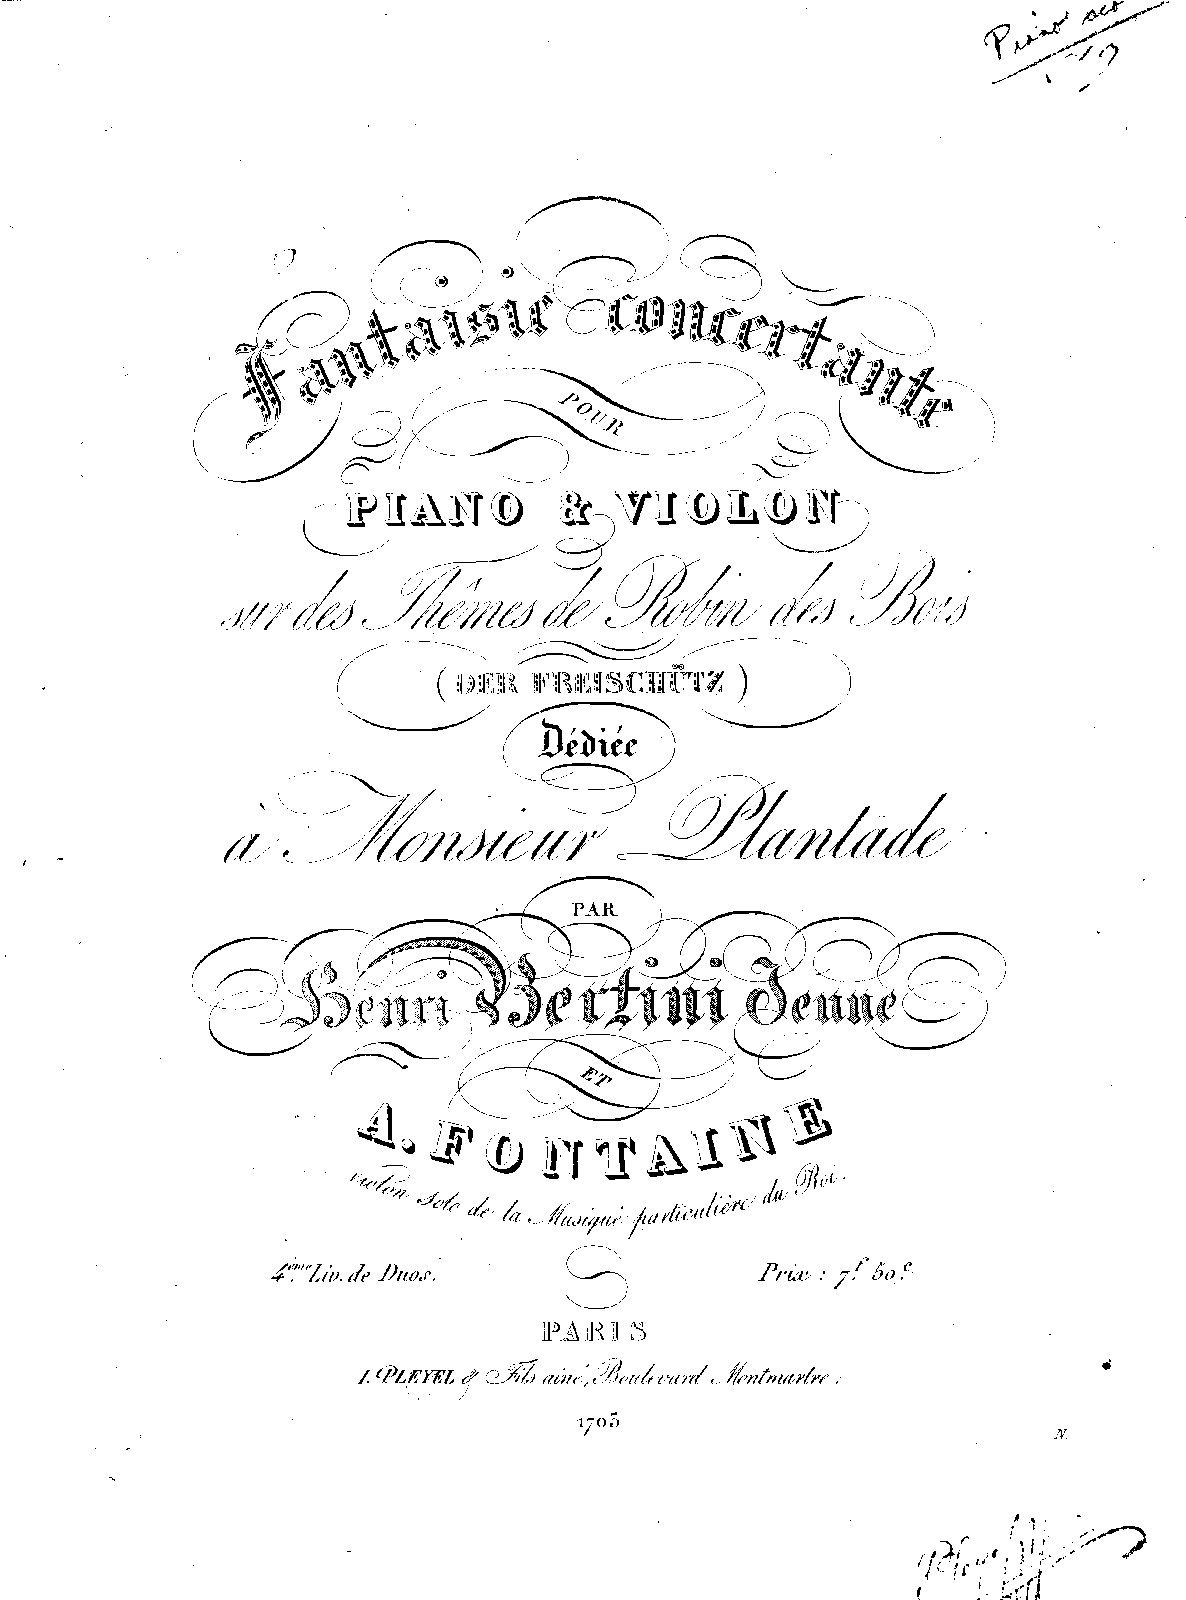 Piano
Fantaisie concertante
POUR
PIANO & VIOLON
sur des Thêmes de Robin des Bois
(DER FREISCHÜTZ)
Dédiée
à Monsieur Plantade
PAR
Henri Bertini Jeune
ET
A. FONTAINE
violon solo de la Musique particulière du Roi.
4.ème Liv. de Duos.
Prix : 7f 50c.
PARIS
I. PLEYEL & Fils ainé, Boulevard Montmartre.
1705
N.